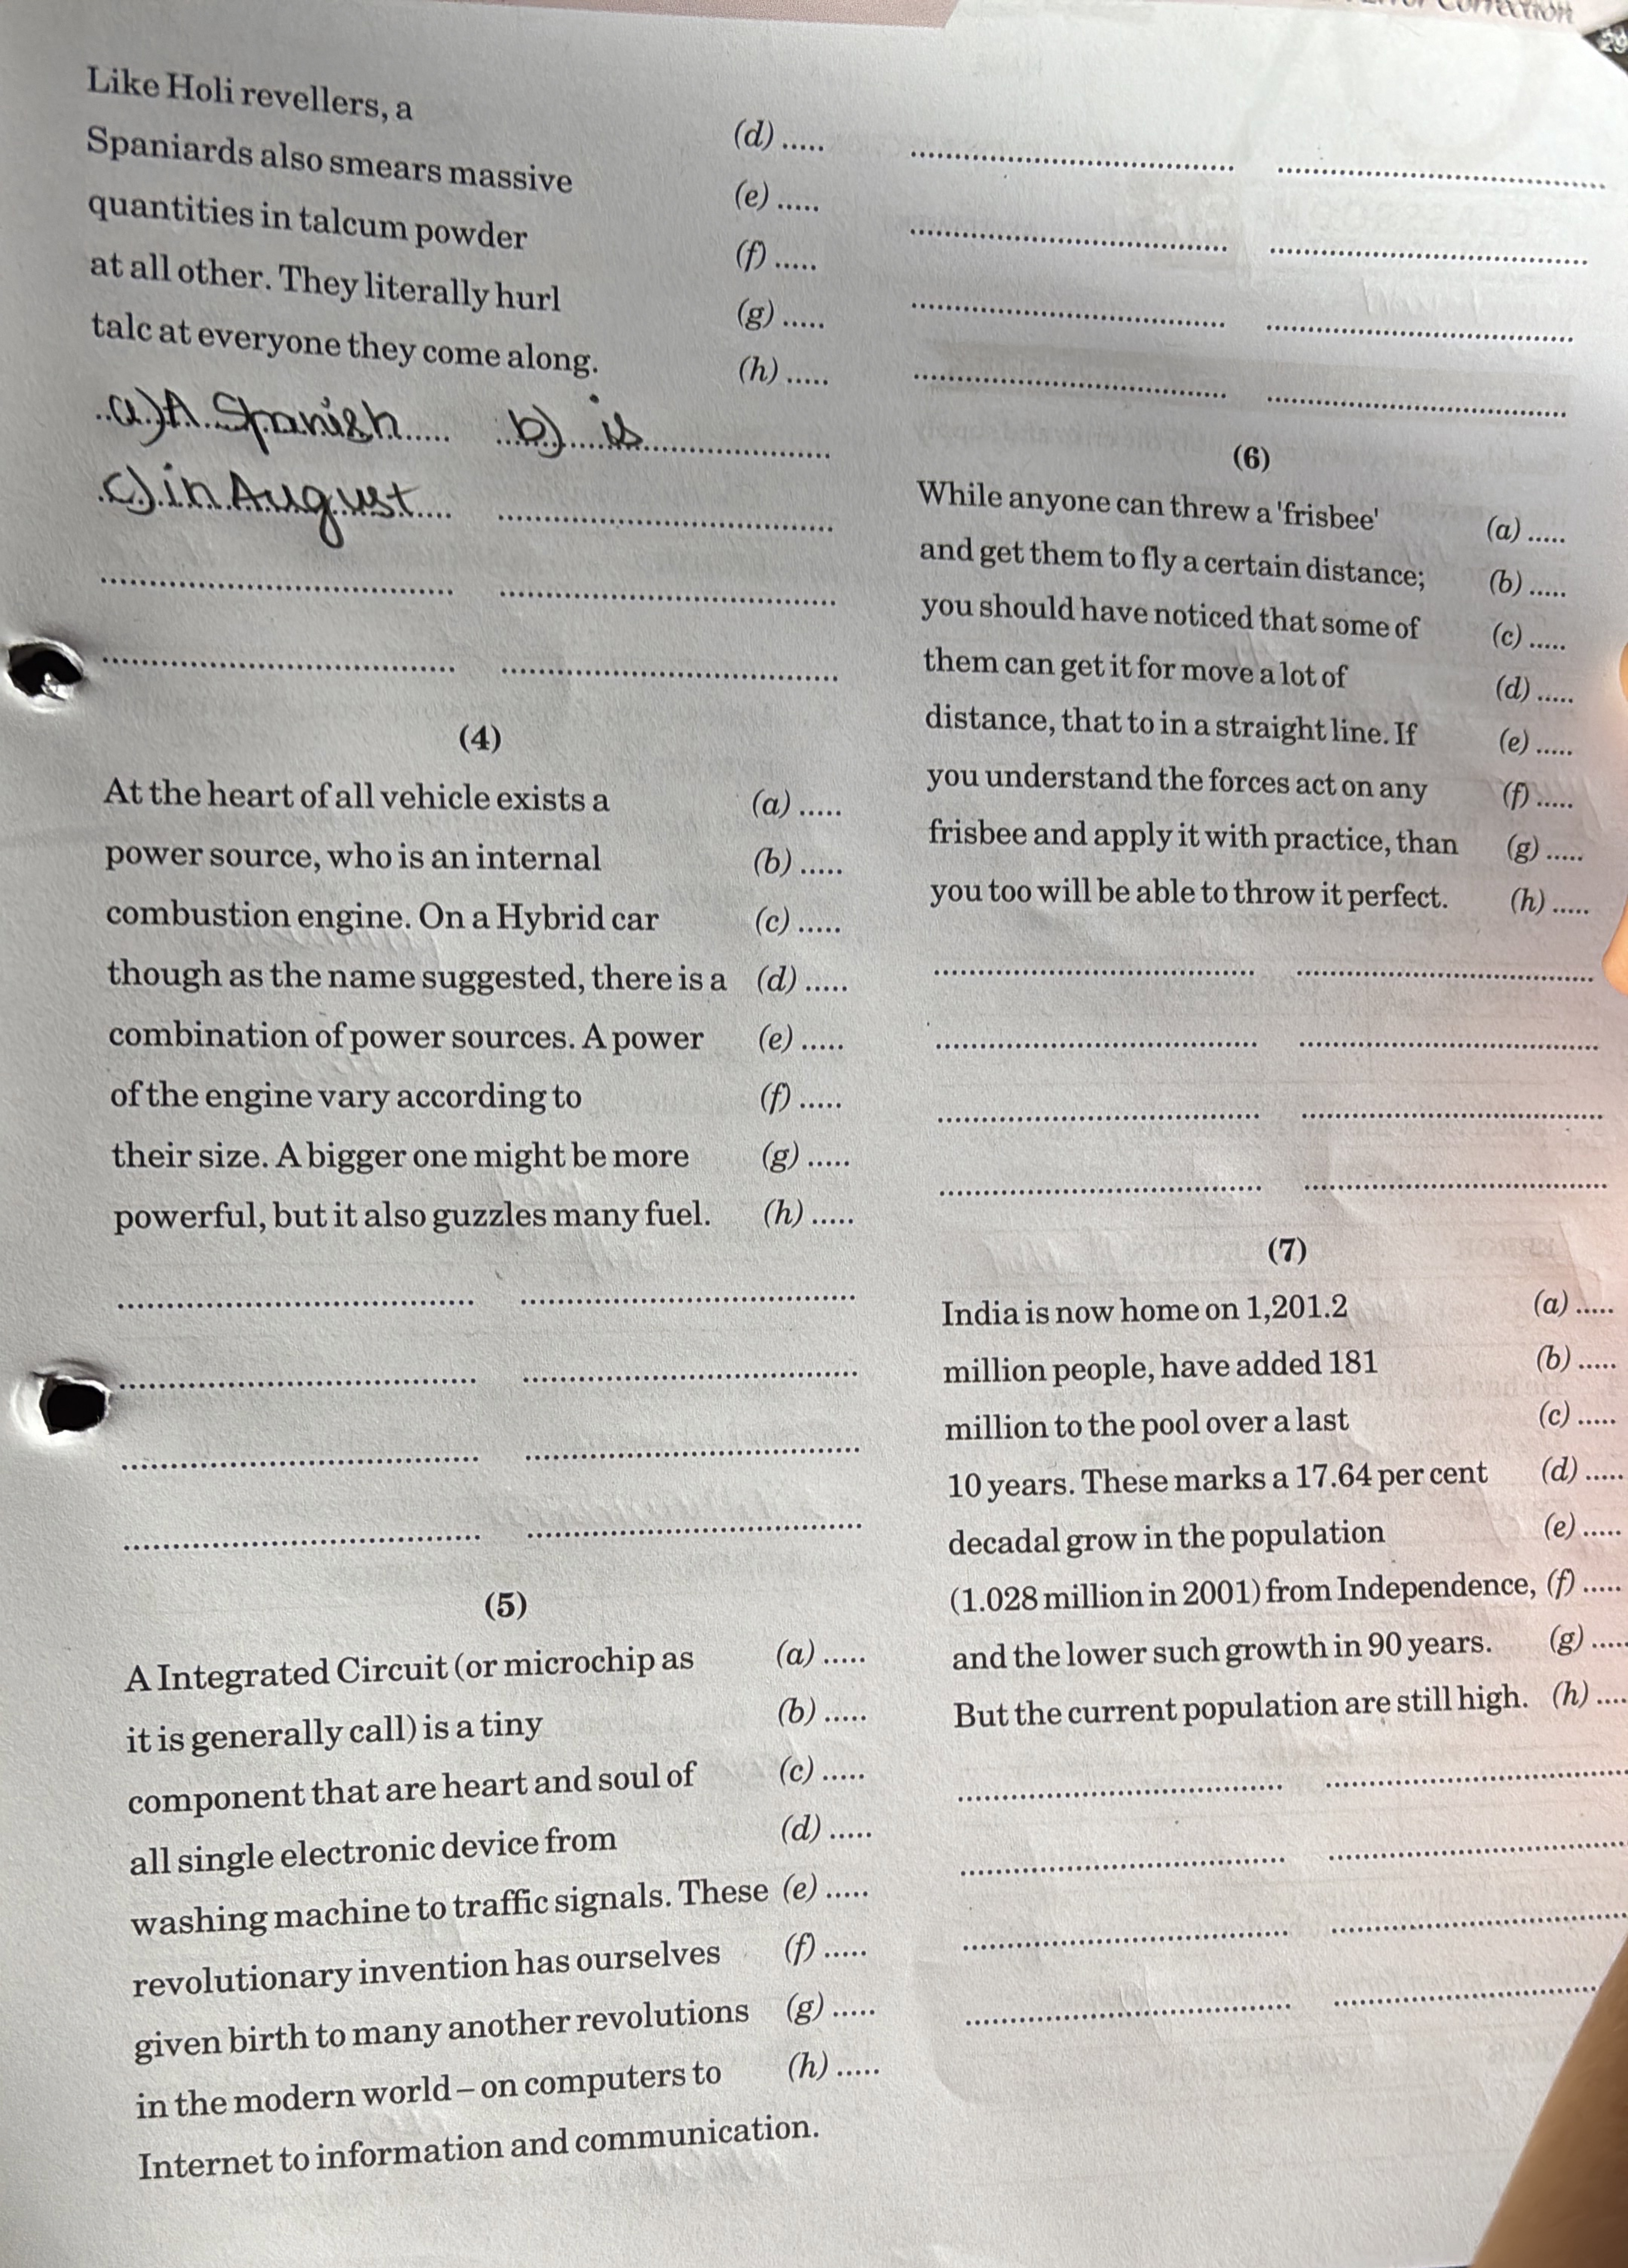 Error Correction
29
Like Holi revellers, a
Spaniards also smears massive (d) .....
quantities in talcum powder (e) .....
at all other. They literally hurl (f) .....
talc at everyone they come along. (g) .....
(h) .....
a) A Spanish b) is
c) in August
(4)
At the heart of all vehicle exists a (a) .....
power source, who is an internal (b) .....
combustion engine. On a Hybrid car (c) .....
though as the name suggested, there is a (d) .....
combination of power sources. A power (e) .....
of the engine vary according to (f) .....
their size. A bigger one might be more (g) .....
powerful, but it also guzzles many fuel. (h) .....
(5)
A Integrated Circuit (or microchip as (a) .....
it is generally call) is a tiny (b) .....
component that are heart and soul of (c) .....
all single electronic device from (d) .....
washing machine to traffic signals. These (e) .....
revolutionary invention has ourselves (f) .....
given birth to many another revolutions (g) .....
in the modern world – on computers to (h) .....
Internet to information and communication.
(6)
While anyone can threw a 'frisbee' (a) .....
and get them to fly a certain distance; (b) .....
you should have noticed that some of (c) .....
them can get it for move a lot of (d) .....
distance, that to in a straight line. If (e) .....
you understand the forces act on any (f) .....
frisbee and apply it with practice, than (g) .....
you too will be able to throw it perfect. (h) .....
(7)
India is now home on 1,201.2 (a) .....
million people, have added 181 (b) .....
million to the pool over a last (c) .....
10 years. These marks a 17.64 per cent (d) .....
decadal grow in the population (e) .....
(1.028 million in 2001) from Independence, (f) .....
and the lower such growth in 90 years. (g) .....
But the current population are still high. (h) ....